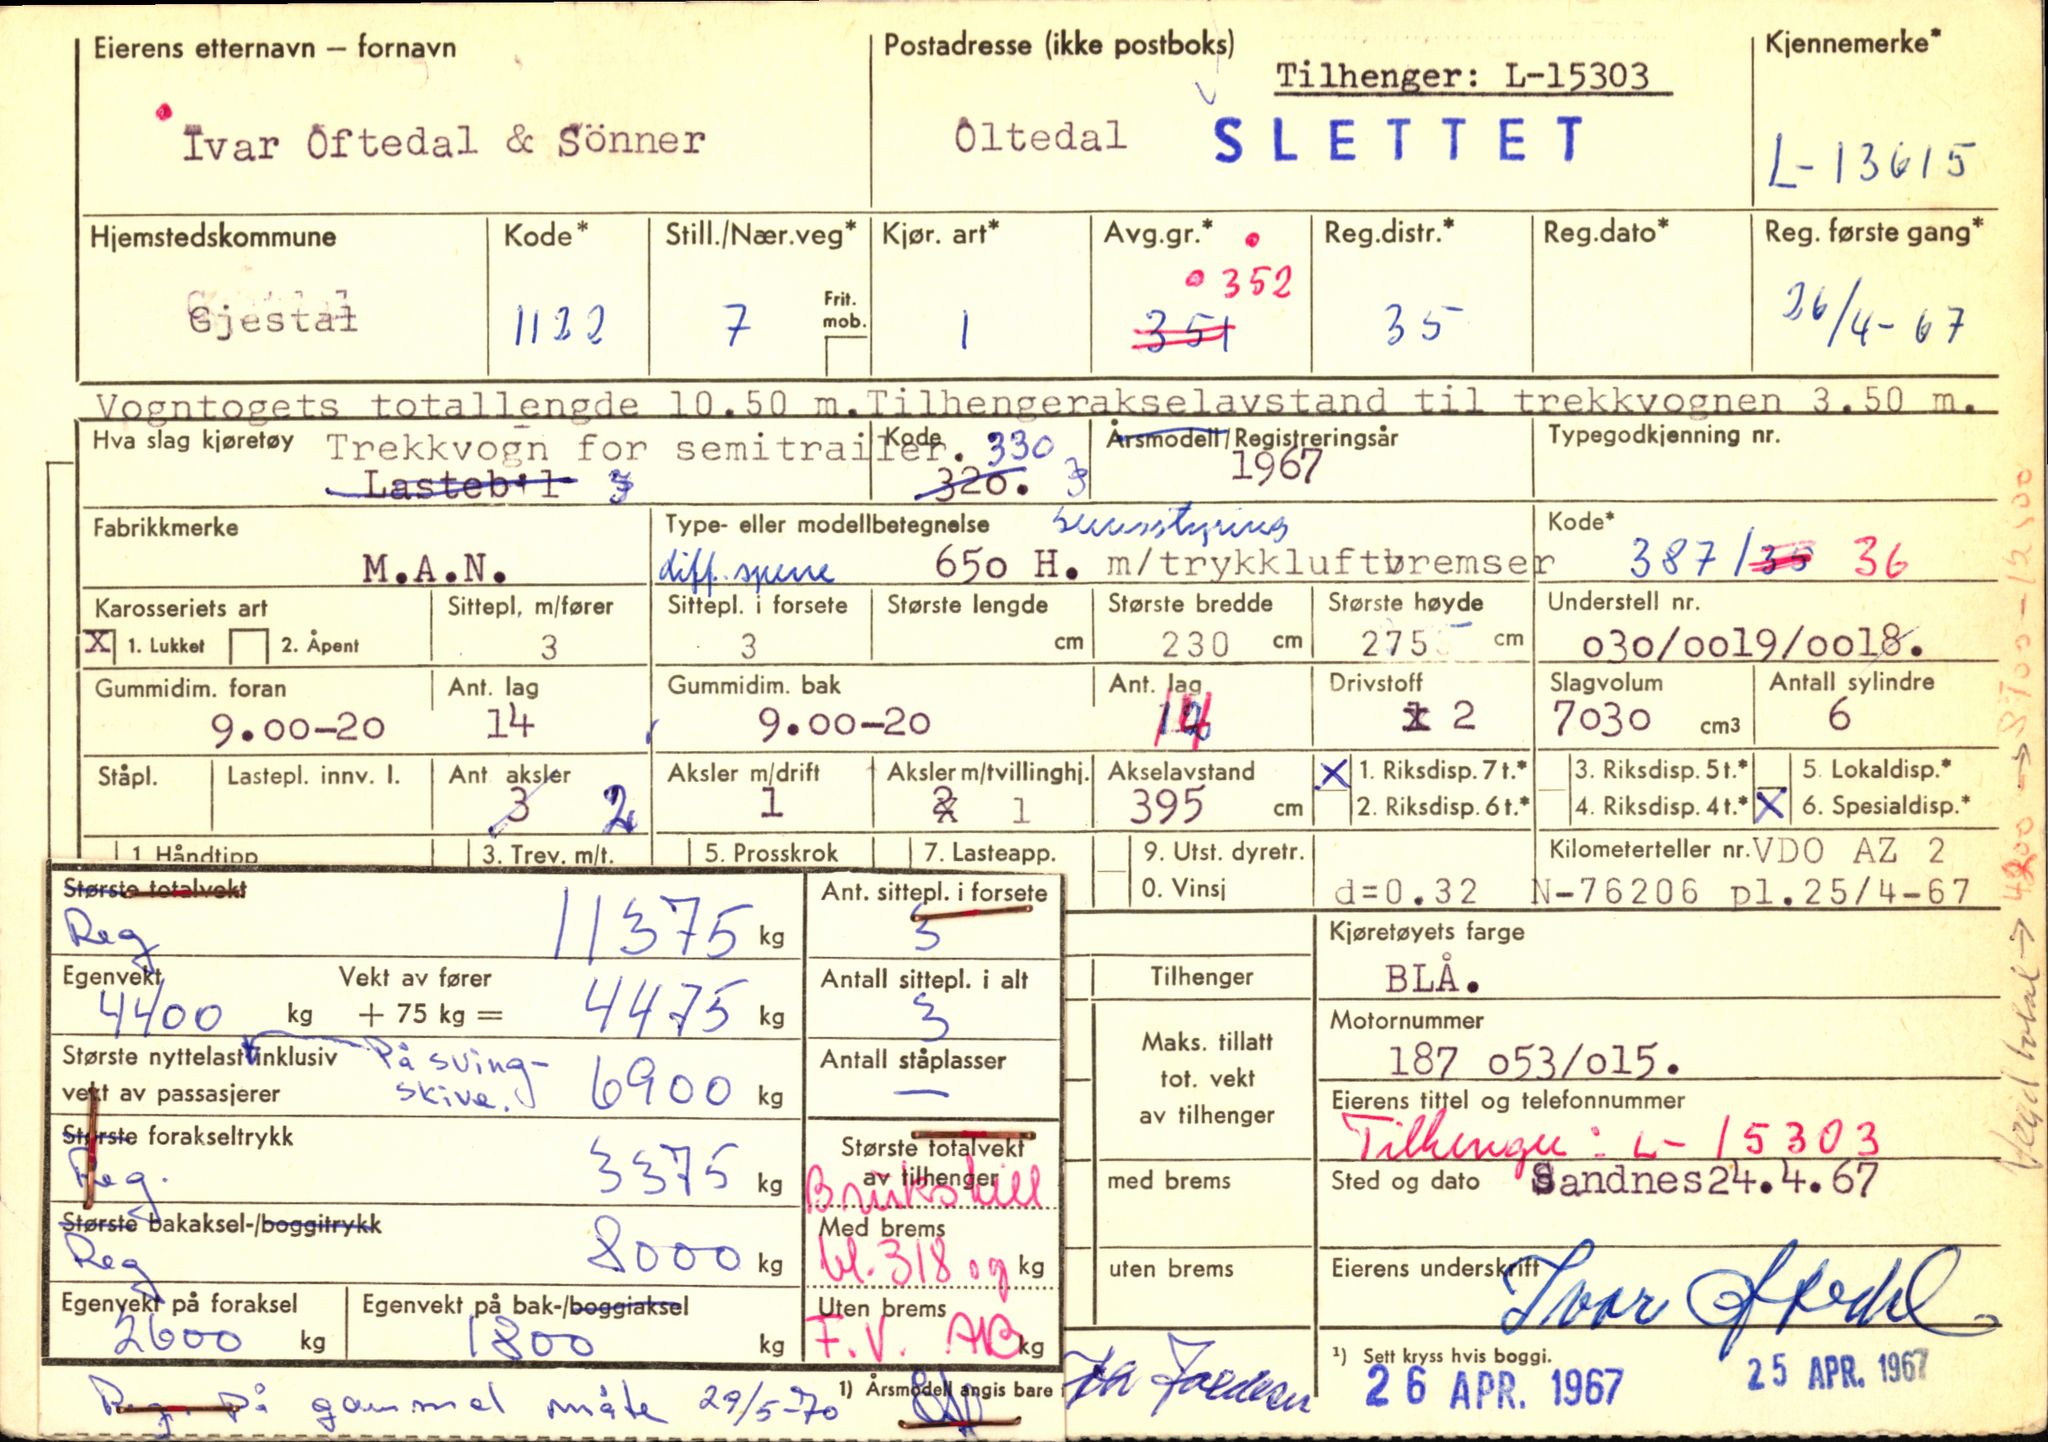 Eierens etternavn – fornavn
Ivar Oftedal & Sönner
Postadresse (ikke postboks)
Tilhenger: L-15303
Oltedal
SLETTET
Kjennemerke*
L-13615
Hjemstedskommune
Gjestal
Kode*
1122
Still./Nær.veg*
7
Frit. mob.
Kjør. art*
1
Avg.gr.*
352
351
Reg.distr.*
35
Reg.dato*
Reg. første gang*
26/4-67
Vogntogets totallengde 10.50 m.Tilhengerakselavstand til trekkvognen 3.50 m.
Hva slag kjøretøy
Trekkvogn for semitrailer.
Lastebil
Kode
330
320.
Årsmodell/Registreringsår
1967
Typegodkjenning nr.
Fabrikkmerke
M.A.N.
Type- eller modellbetegnelse
diff. sperre 650 H. m/trykkluftbremser
Kode*
387/35 36
Karosseriets art
X 1. Lukket 2. Åpent
Sittepl, m/fører
3
Sittepl. i forsete
3
Største lengde
cm
Største bredde
230 cm
Største høyde
275 cm
Understell nr.
030/0019/0018.
Gummidim. foran
9.00-20
Ant. lag
14
Gummidim. bak
9.00-20
Ant. lag
14
Drivstoff
1 2
Slagvolum
7030 cm3
Antall sylindre
6
Ståpl.
Lastepl. innv. l.
Ant aksler
3 2
Aksler m/drift
1
Aksler m/tvillinghj.
2 1
Akselavstand
395 cm
X 1. Riksdisp. 7 t.*
2. Riksdisp. 6 t.*
3. Riksdisp. 5 t.*
4. Riksdisp. 4 t.*
5. Lokaldisp.*
X 6. Spesialdisp.*
1 Håndtipp
3. Trev. m/t.
5. Prosskrok
7. Lasteapp.
9. Utst. dyretr.
0. Vinsj
d=0.32
Kilometerteller nr. VDO AZ 2
N-76206 pl.25/4-67
Største totalvekt
Reg
11375 kg
Ant. sittepl. i forsete
3
Egenvekt
4400 kg
Vekt av fører
+ 75 kg =
4475 kg
Antall sittepl. i alt
3
Største nyttelast inklusiv
vekt av passasjerer
På sving-
skive.
6900 kg
Antall ståplasser
—
Største forakseltrykk
Reg.
3375 kg
Største totalvekt
av tilhenger
Største bakaksel-/boggitrykk
Reg
8000 kg
Brukstill
Med brems
bl. 318 og kg
Egenvekt på foraksel
2600 kg
Egenvekt på bak-/boggiaksel
1800 kg
Uten brems
F.V. AB kg
Reg. på gammel måte 29/5-70
1) Årsmodell angis bare
Tilhenger
Maks. tillatt
tot. vekt
av tilhenger
med brems
uten brems
Kjøretøyets farge
BLÅ.
Motornummer
187 053/015.
Eierens tittel og telefonnummer
Tilhenger: L-15303
Sted og dato Sandnes 24.4.67
Eierens underskrift
Ivar Oftedal
¹) Sett kryss hvis boggi.
26 APR. 1967
25 APR. 1967